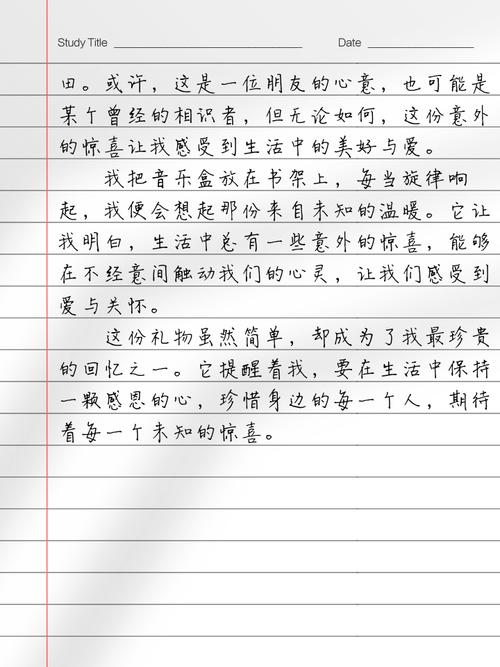 Study Title Date
田。或许，这是一位朋友的心意，也可能是
某个曾经的相识者，但无论如何，这份意外
的惊喜让我感受到生活中的美好与爱。
我把音乐盒放在书架上，每当旋律响
起，我便会想起那份来自未知的温暖。它让
我明白，生活中总有一些意外的惊喜，能够
在不经意间触动我们的心灵，让我们感受到
爱与关怀。
这份礼物虽然简单，却成为了我最珍贵
的回忆之一。它提醒着我，要在生活中保持
一颗感恩的心，珍惜身边的每一个人，期待
着每一个未知的惊喜。